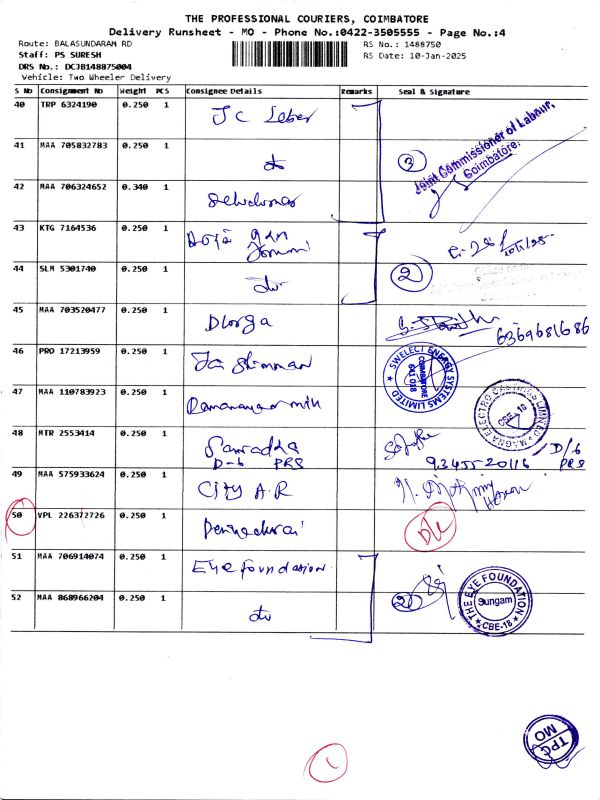 THE PROFESSIONAL COURIERS, COIMBATORE
Delivery Runsheet - MO - Phone No.:0422-3505555 - Page No.:4
Route: BALASUNDARAM RD
RS No.: 1488750
Staff: PS SURESH
RS Date: 10-Jan-2025
DRS No.: DCJB148875004
Vehicle: Two Wheeler Delivery
S No Consignment No Weight PCS Consignee Details Remarks Seal & Signature
40 TRP 6324190 0.250 1 J C Leber
Joint Commissioner of Labour,
Coimbatore.
41 MAA 705832783 0.250 1
3
42 MAA 706324652 0.340 1
43 KTG 7164536 0.250 1
44 SLM 5301740 0.250 1
2
45 MAA 703520477 0.250 1 Durga
6369681686
46 PRO 17213959 0.250 1
SWELECT ENERGY SYSTEMS LIMITED
COIMBATORE
641 018
47 MAA 110783923 0.250 1
MAGNA ELECTRO CASTINGS LIMITED
CBE-18
48 MTR 2553414 0.250 1
D-6 PRS
9345520116 D/6
PRS
49 MAA 575933624 0.250 1 CITY A.R
50 VPL 226372726 0.250 1
D/L
51 MAA 706914074 0.250 1 Eye foundation
52 MAA 868966204 0.250 1
2
THE EYE FOUNDATION
Sungam
CBE-18
TPC
MO
1